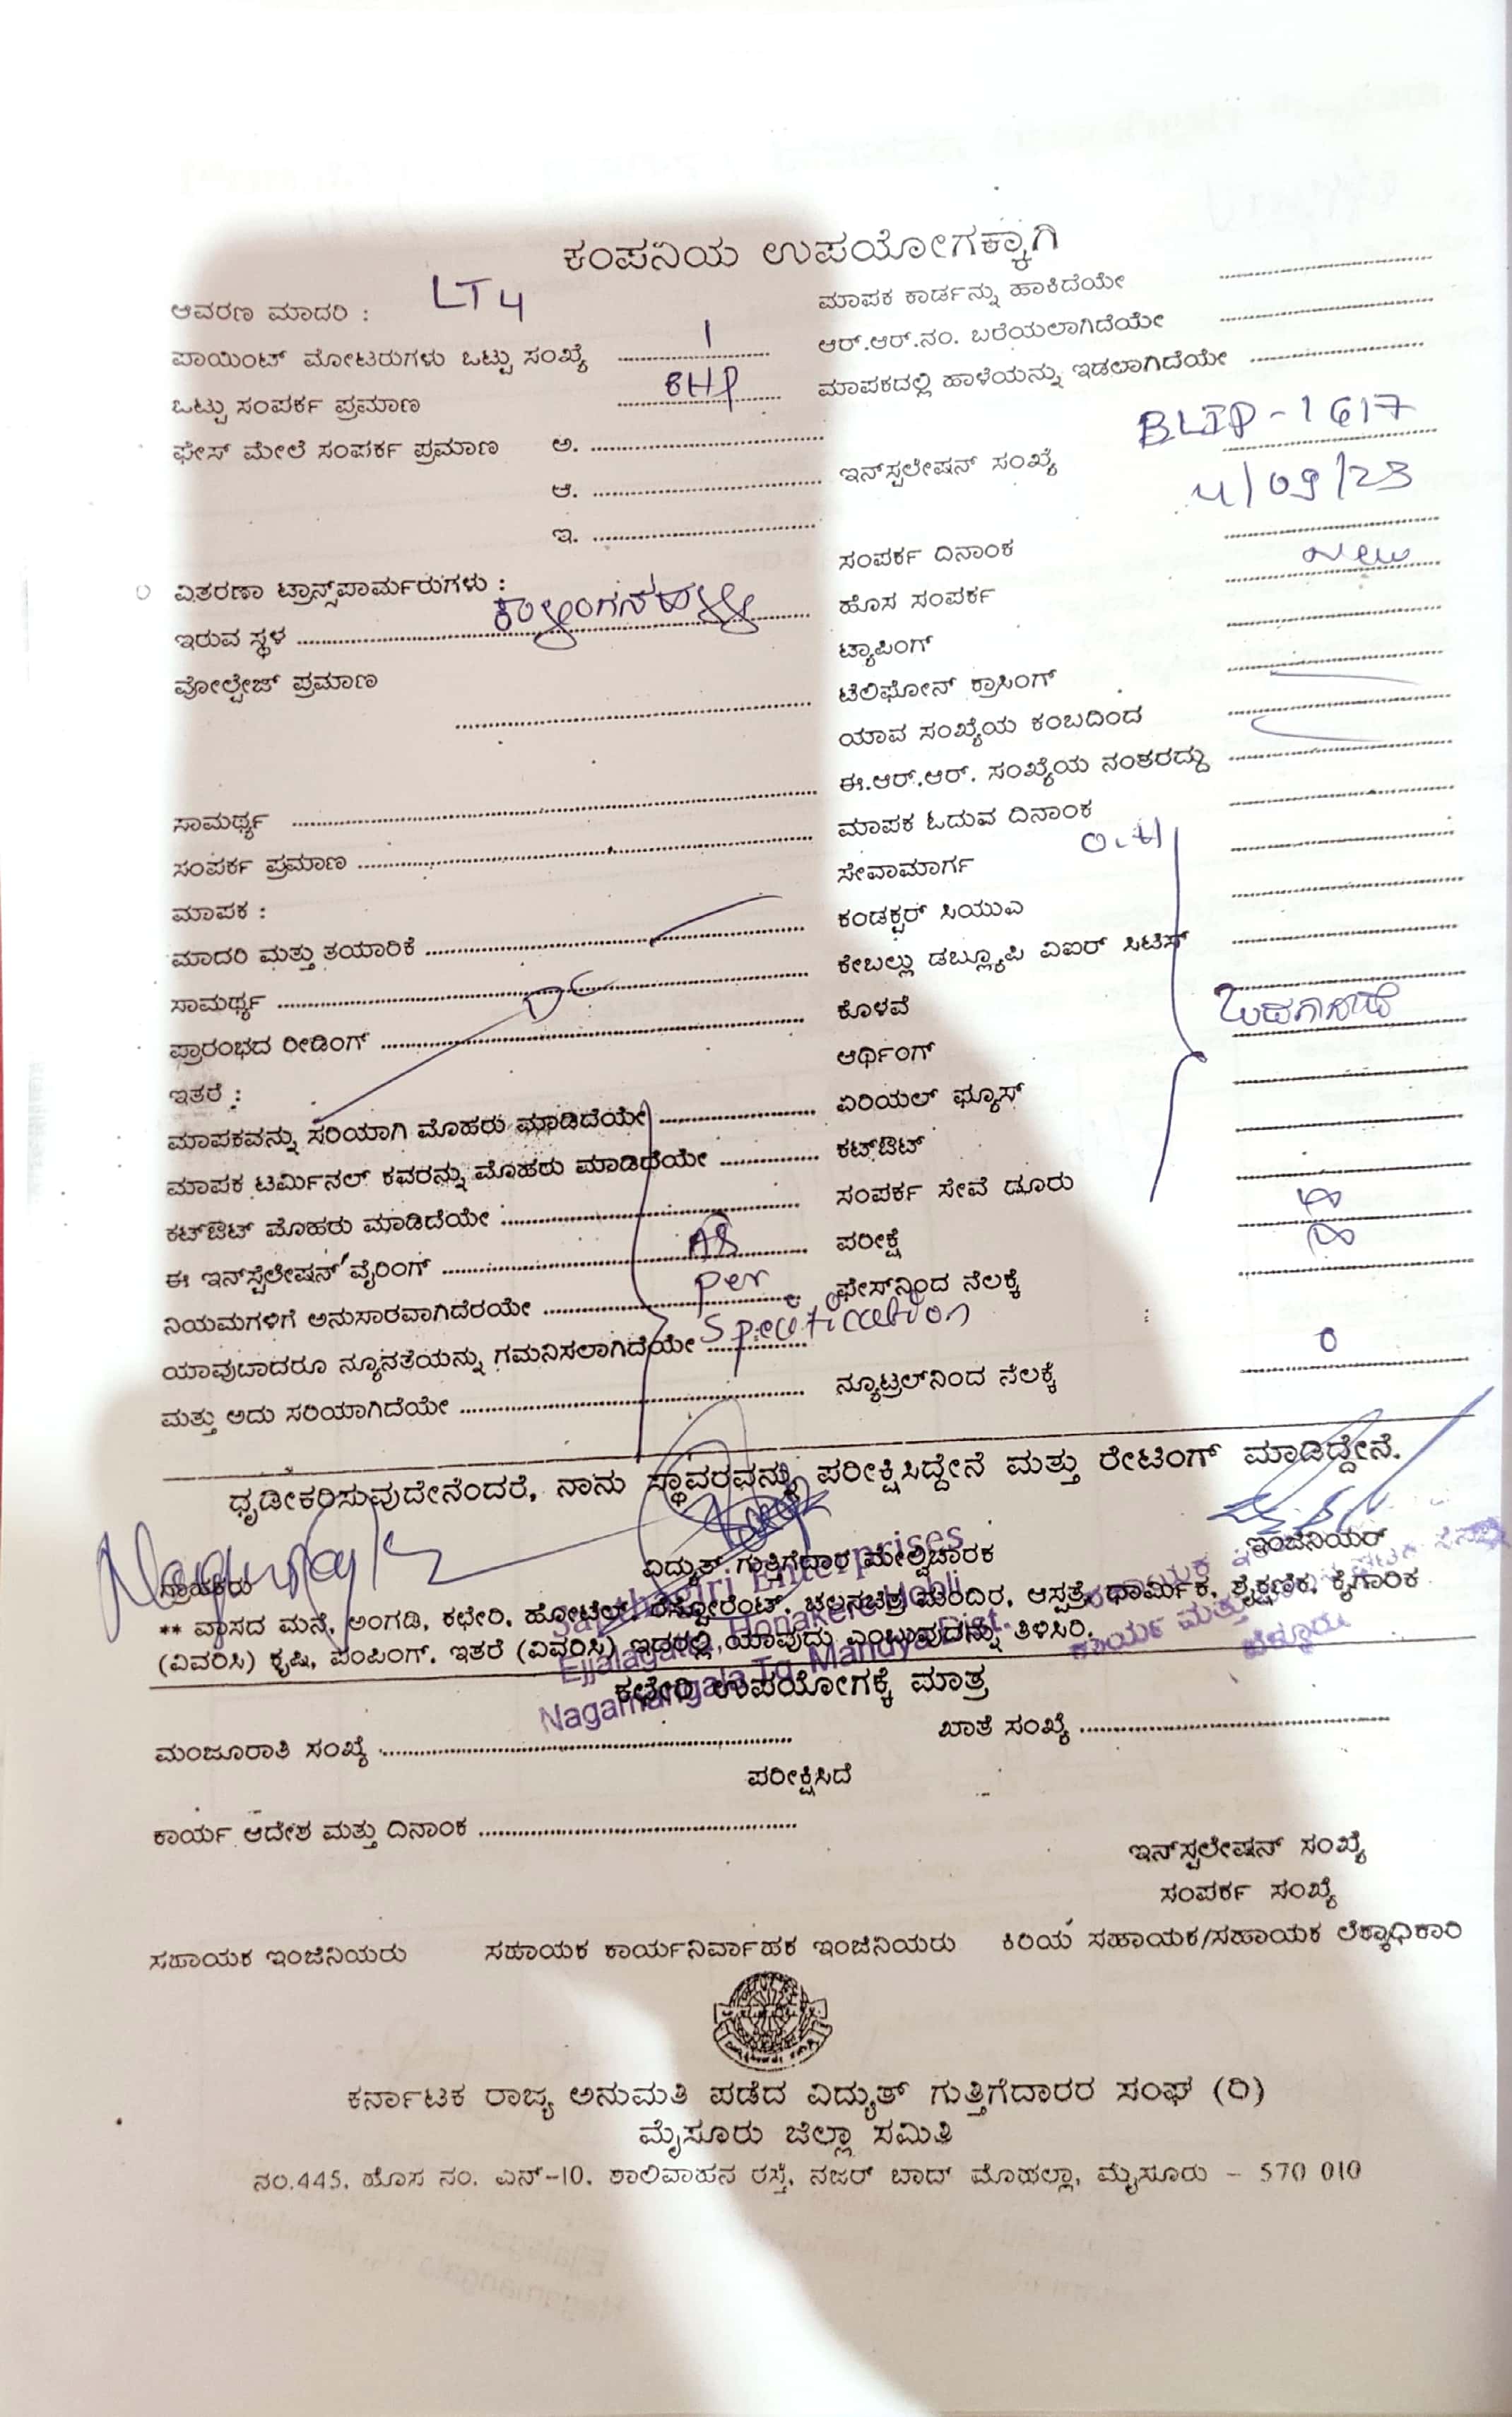 ಕಂಪನಿಯ ಉಪಯೋಗಕ್ಕಾಗಿ
ಆವರಣ ಮಾದರಿ : LT4
ಪಾಯಿಂಟ್ ಮೋಟರುಗಳು ಒಟ್ಟು ಸಂಖ್ಯೆ 1
ಒಟ್ಟು ಸಂಪರ್ಕ ಪ್ರಮಾಣ 8HP
ಫೇಸ್ ಮೇಲೆ ಸಂಪರ್ಕ ಪ್ರಮಾಣ ಅ.
ಆ.
ಇ.
ವಿತರಣಾ ಟ್ರಾನ್ಸ್‌ಪಾರ್ಮರುಗಳು :
ಇರುವ ಸ್ಥಳ
ವೋಲ್ಟೇಜ್ ಪ್ರಮಾಣ
ಸಾಮರ್ಥ್ಯ
ಸಂಪರ್ಕ ಪ್ರಮಾಣ
ಮಾಪಕ :
ಮಾದರಿ ಮತ್ತು ತಯಾರಿಕೆ
ಸಾಮರ್ಥ್ಯ
ಪ್ರಾರಂಭದ ರೀಡಿಂಗ್
ಇತರೆ :
ಮಾಪಕವನ್ನು ಸರಿಯಾಗಿ ಮೊಹರು ಮಾಡಿದೆಯೇ
ಮಾಪಕ ಟರ್ಮಿನಲ್ ಕವರನ್ನು ಮೊಹರು ಮಾಡಿದೆಯೇ
ಕಟ್‌ಔಟ್ ಮೊಹರು ಮಾಡಿದೆಯೇ
ಈ ಇನ್‌ಸ್ಟೆಲೇಷನ್ ವೈರಿಂಗ್ As
ನಿಯಮಗಳಿಗೆ ಅನುಸಾರವಾಗಿದೆರಯೇ per
ಯಾವುದಾದರೂ ನ್ಯೂನತೆಯನ್ನು ಗಮನಿಸಲಾಗಿದೆಯೇ Specification
ಮತ್ತು ಅದು ಸರಿಯಾಗಿದೆಯೇ
ಮಾಪಕ ಕಾರ್ಡನ್ನು ಹಾಕಿದೆಯೇ
ಆರ್.ಆರ್.ನಂ. ಬರೆಯಲಾಗಿದೆಯೇ
ಮಾಪಕದಲ್ಲಿ ಹಾಳೆಯನ್ನು ಇಡಲಾಗಿದೆಯೇ
ಇನ್‌ಸ್ಟಲೇಷನ್ ಸಂಖ್ಯೆ BLIP-1617
ಸಂಪರ್ಕ ದಿನಾಂಕ 4/09/23
ಹೊಸ ಸಂಪರ್ಕ New
ಟ್ಯಾಪಿಂಗ್
ಟೆಲಿಫೋನ್ ಕ್ರಾಸಿಂಗ್
ಯಾವ ಸಂಖ್ಯೆಯ ಕಂಬದಿಂದ
ಈ.ಆರ್.ಆರ್. ಸಂಖ್ಯೆಯ ನಂತರದ್ದು
ಮಾಪಕ ಓದುವ ದಿನಾಂಕ
ಸೇವಾಮಾರ್ಗ O.H
ಕಂಡಕ್ಟರ್ ಸಿಯುಎ
ಕೇಬಲ್ಲು ಡಬ್ಲ್ಯೂಪಿ ವಿಐರ್ ಸಿಟಿಸ್
ಕೊಳವೆ
ಆರ್ಥಿಂಗ್
ಏರಿಯಲ್ ಫ್ಯೂಸ್
ಕಟ್‌ಔಟ್
ಸಂಪರ್ಕ ಸೇವೆ ದೂರು
ಪರೀಕ್ಷೆ
ಫೇಸ್‌ನಿಂದ ನೆಲಕ್ಕೆ
ನ್ಯೂಟ್ರಲ್‌ನಿಂದ ನೆಲಕ್ಕೆ 0
ಧೃಡೀಕರಿಸುವುದೇನೆಂದರೆ, ನಾನು ಸ್ಥಾವರವನ್ನು ಪರೀಕ್ಷಿಸಿದ್ದೇನೆ ಮತ್ತು ರೇಟಿಂಗ್ ಮಾಡಿದ್ದೇನೆ.
ಗ್ರಾಹಕರು ವಿದ್ಯುತ್ ಗುತ್ತಿಗೆದಾರ ಮೇಲ್ವಿಚಾರಕ ಇಂಜಿನಿಯರ್
** ವಾಸದ ಮನೆ, ಅಂಗಡಿ, ಕಛೇರಿ, ಹೋಟೆಲ್, ರೆಸ್ಟೋರೆಂಟ್, ಚಲನಚಿತ್ರ ಮಂದಿರ, ಆಸ್ಪತ್ರೆ, ಧಾರ್ಮಿಕ, ಶೈಕ್ಷಣಿಕ, ಕೈಗಾರಿಕ
(ವಿವರಿಸಿ) ಕೃಷಿ, ಪಂಪಿಂಗ್, ಇತರೆ (ವಿವರಿಸಿ) ಇದರಲ್ಲಿ ಯಾವುದು ಎಂಬುವುದನ್ನು ತಿಳಿಸಿರಿ.
Enterprises
Ejjalagatta, Honakere Hobli
Nagamangala Tq. Mandya Dist.
ಕಾರ್ಯ ಮತ್ತು
ಬೆಳ್ಳೂರು
ಕಛೇರಿ ಉಪಯೋಗಕ್ಕೆ ಮಾತ್ರ
ಮಂಜೂರಾತಿ ಸಂಖ್ಯೆ ಖಾತೆ ಸಂಖ್ಯೆ
ಪರೀಕ್ಷಿಸಿದೆ
ಕಾರ್ಯ ಆದೇಶ ಮತ್ತು ದಿನಾಂಕ
ಇನ್‌ಸ್ಟಲೇಷನ್ ಸಂಖ್ಯೆ
ಸಂಪರ್ಕ ಸಂಖ್ಯೆ
ಸಹಾಯಕ ಇಂಜಿನಿಯರು ಸಹಾಯಕ ಕಾರ್ಯನಿರ್ವಾಹಕ ಇಂಜಿನಿಯರು ಕಿರಿಯ ಸಹಾಯಕ/ಸಹಾಯಕ ಲೆಕ್ಕಾಧಿಕಾರಿ
ಕರ್ನಾಟಕ ರಾಜ್ಯ ಅನುಮತಿ ಪಡೆದ ವಿದ್ಯುತ್ ಗುತ್ತಿಗೆದಾರರ ಸಂಘ (ರಿ)
ಮೈಸೂರು ಜಿಲ್ಲಾ ಸಮಿತಿ
ನಂ.445, ಹೊಸ ನಂ. ಎನ್-10, ಶಾಲಿವಾಹನ ರಸ್ತೆ, ನಜರ್ ಬಾದ್ ಮೊಹಲ್ಲಾ, ಮೈಸೂರು - 570 010